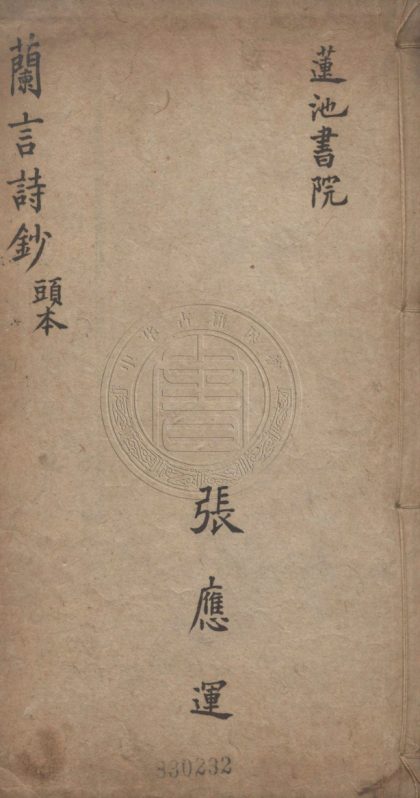 蓮池書院
張應運
蘭言詩鈔
頭本
930232